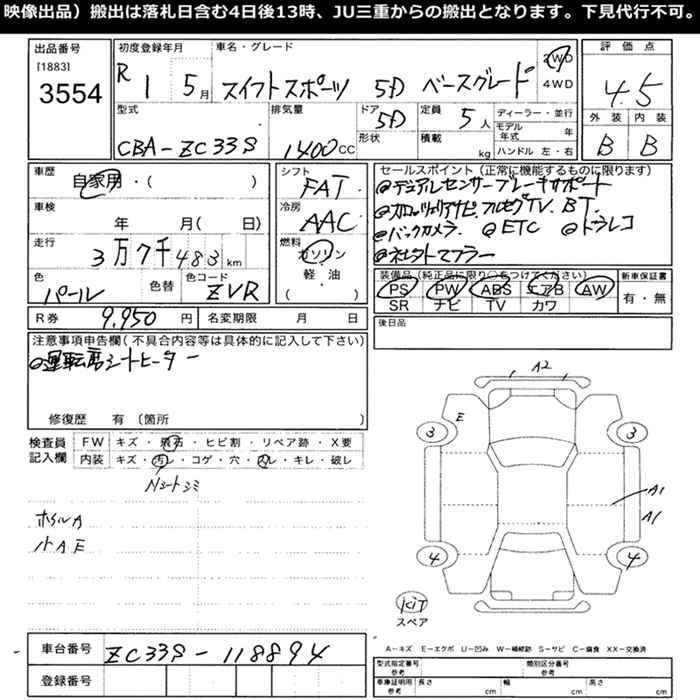 映像出品）搬出は落札日含む4日後13時、JU三重からの搬出となります。下見代行不可。
出品番号 初度登録年月 車名・グレード 評価点
[1883] 3554 R 1 5月 スイフトスポーツ 5D ベースグレード 2WD 4WD 4.5
型式 排気量 ドア 定員 ディーラー・並行 外装 内装
CBA-ZC33S 1400cc 5D 5人 モデル年式 年 B B
形状 積載 kg ハンドル 左・右
車歴 シフト セールスポイント（正常に機能するものに限ります）
自家用・( ) FAT @デュアルセンサーブレーキサポート
車検 冷房 フルセグTV. BT.
年 月( 日) AAC @バックカメラ. @ETC @ドラレコ
走行 燃料
3万7千483km ガソリン 軽・油 ( )
色 色替 色コード 装備品（純正品に限り○をつけてください） 新車保証書
パール ZVR PS PW ABS エアB AW 有・無
SR ナビ TV カワ
R券 9,950円 名変期限 月 日 後日品
注意事項申告欄（不具合内容等は具体的に記入して下さい）
@運転席シートヒーター
修復歴 有（箇所
検査員記入欄 FW キズ・飛石・ヒビ割・リペア跡・X要
内装 キズ・汚レ・コゲ・穴・スレ・キレ・破レ
Nシートシミ
ホイルA
A2
E
3 3
A1
A1
4 4
KIT
スペア
車台番号 ZC33S-118894
登録番号
A－キズ E－エクボ U－凹み W－補修跡 S－サビ C－腐食 XX－交換済
型式指定番号 参考 類別区分番号 参考
車庫証明用 参考 長さ cm 幅 cm 高さ cm